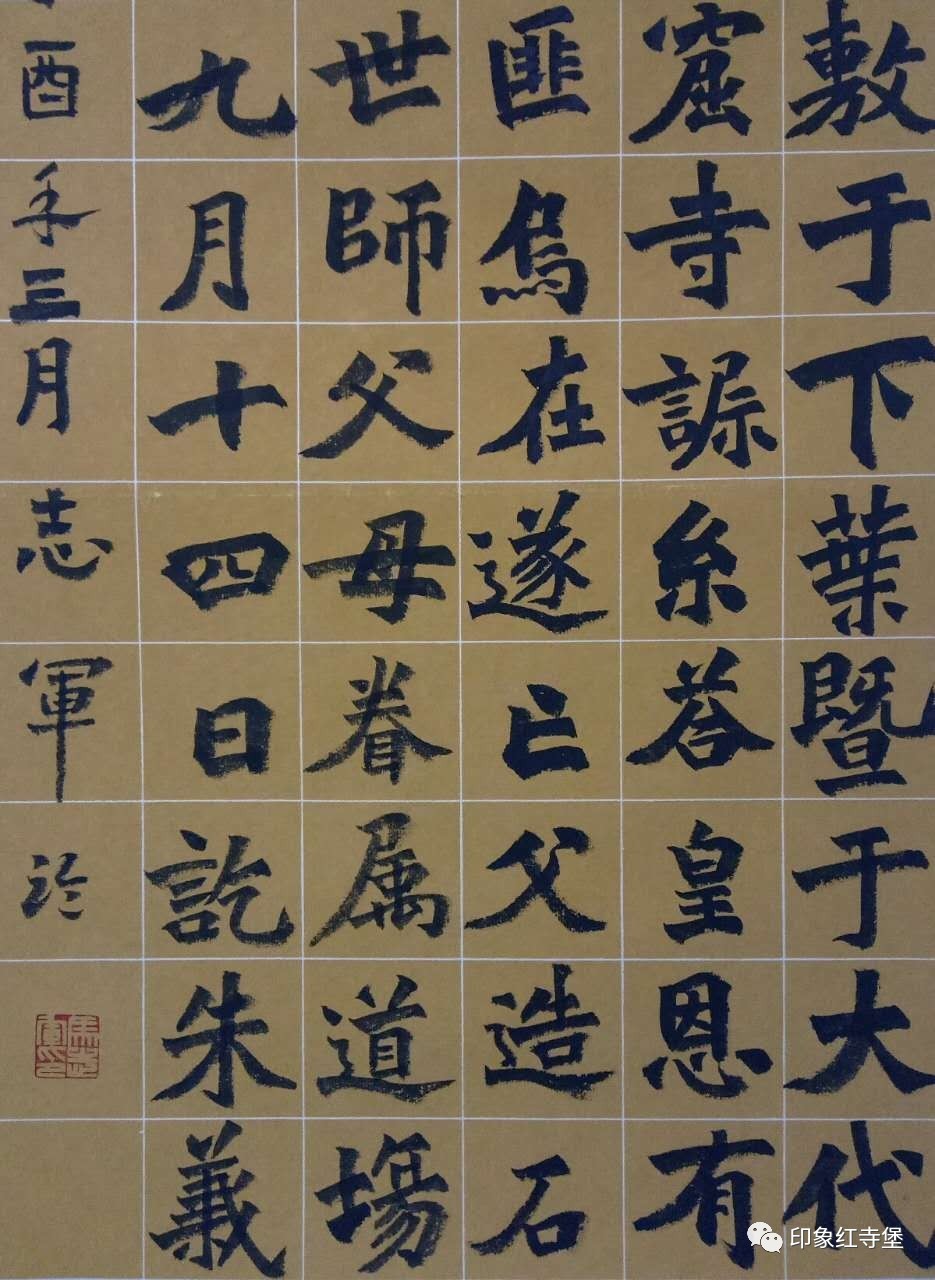 敷于下葉暨于大代
窟寺糸荅皇恩有
匪烏在遂亡父造石
世師父母眷属道塲
九月十四日訖朱義
酉年三月志軍临
印象红寺堡